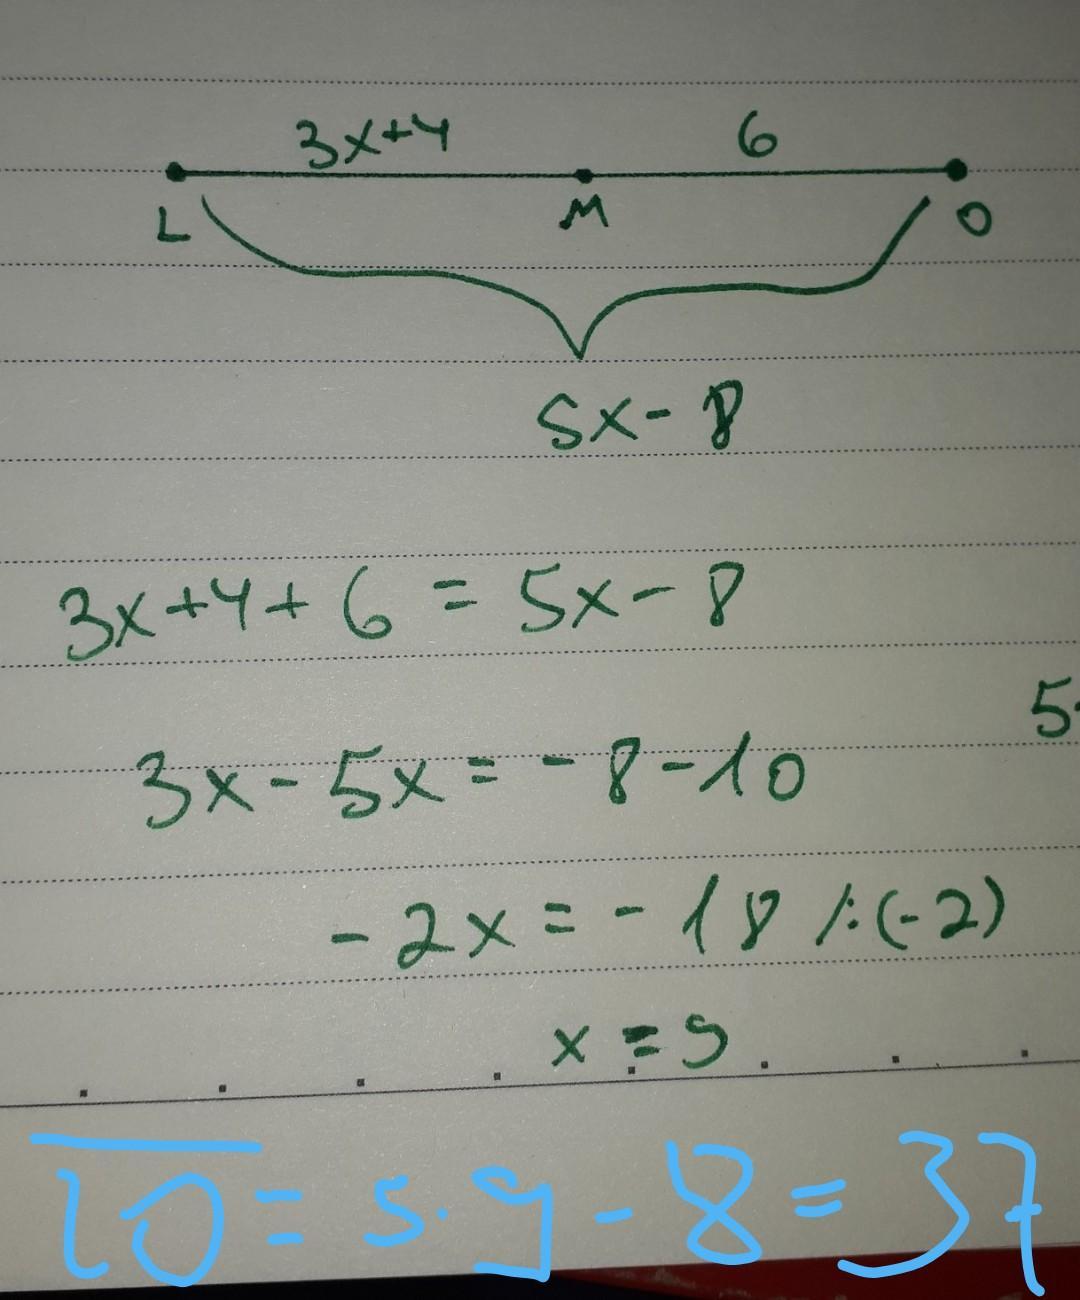 3x+4 6
L M O
5x-8
3x+4+6=5x-8
5.
3x-5x=-8-10
-2x=-18 /:(-2)
x=9
LO=5.9-8=37